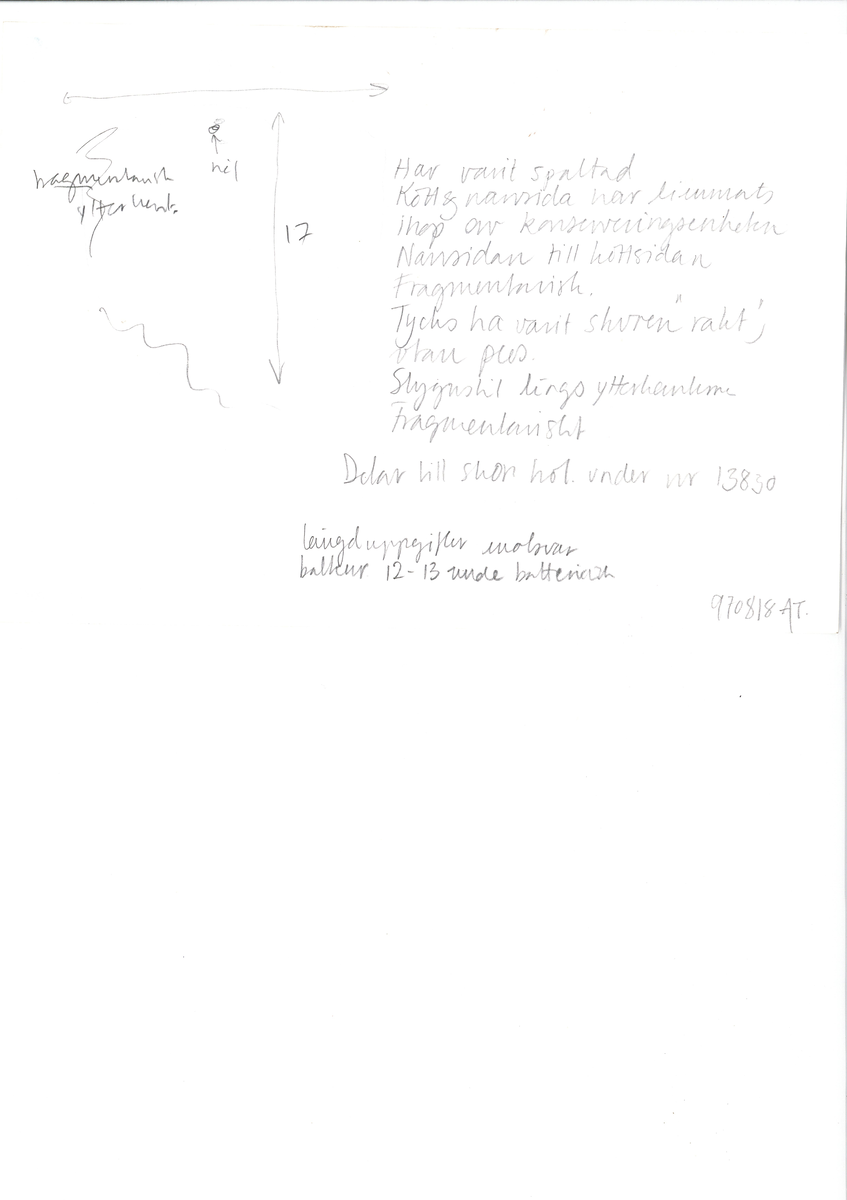 hål
fragmentarisk
ytterkant.
17
Har varit spaltad
Kött & narvsida har limmats
ihop av konserveringsenheten
Narvsidan till köttsidan
Fragmentarisk.
Tycks ha varit skuren "rakt",
utan
Stygnshl längs ytterkanterna
Fragmentariskt
Delar till skon hol. under nr 13830
längduppgifter motsvar
balkar 12-13 unde batteridäck
970818 AT.